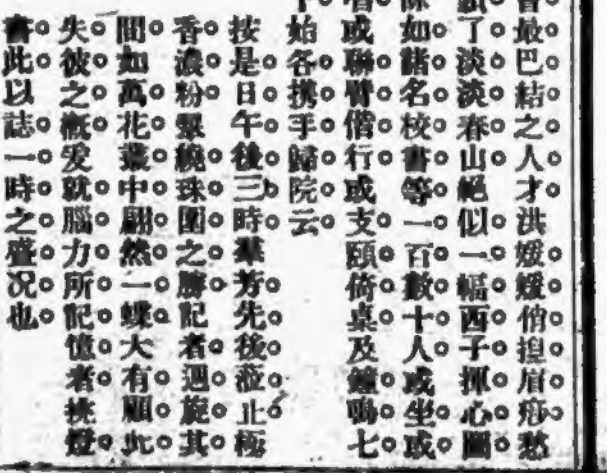 最巴結之人才洪媛媛俏揑眉痧愁
了淡淡春山絕似一幅西子揮心圖
如諸名校書等一百數十人或坐或
或聯臂偕行或支頤倚桌及鐘鳴七
始各携手歸院云
按是日午後三時羣芳先後蒞止極
香濃粉聚繞珠圍之勝記者週旋其
間如萬花叢中翩然一蝶大有顧此
失彼之概爰就腦力所記憶者挑燈
書此以誌一時之盛况也